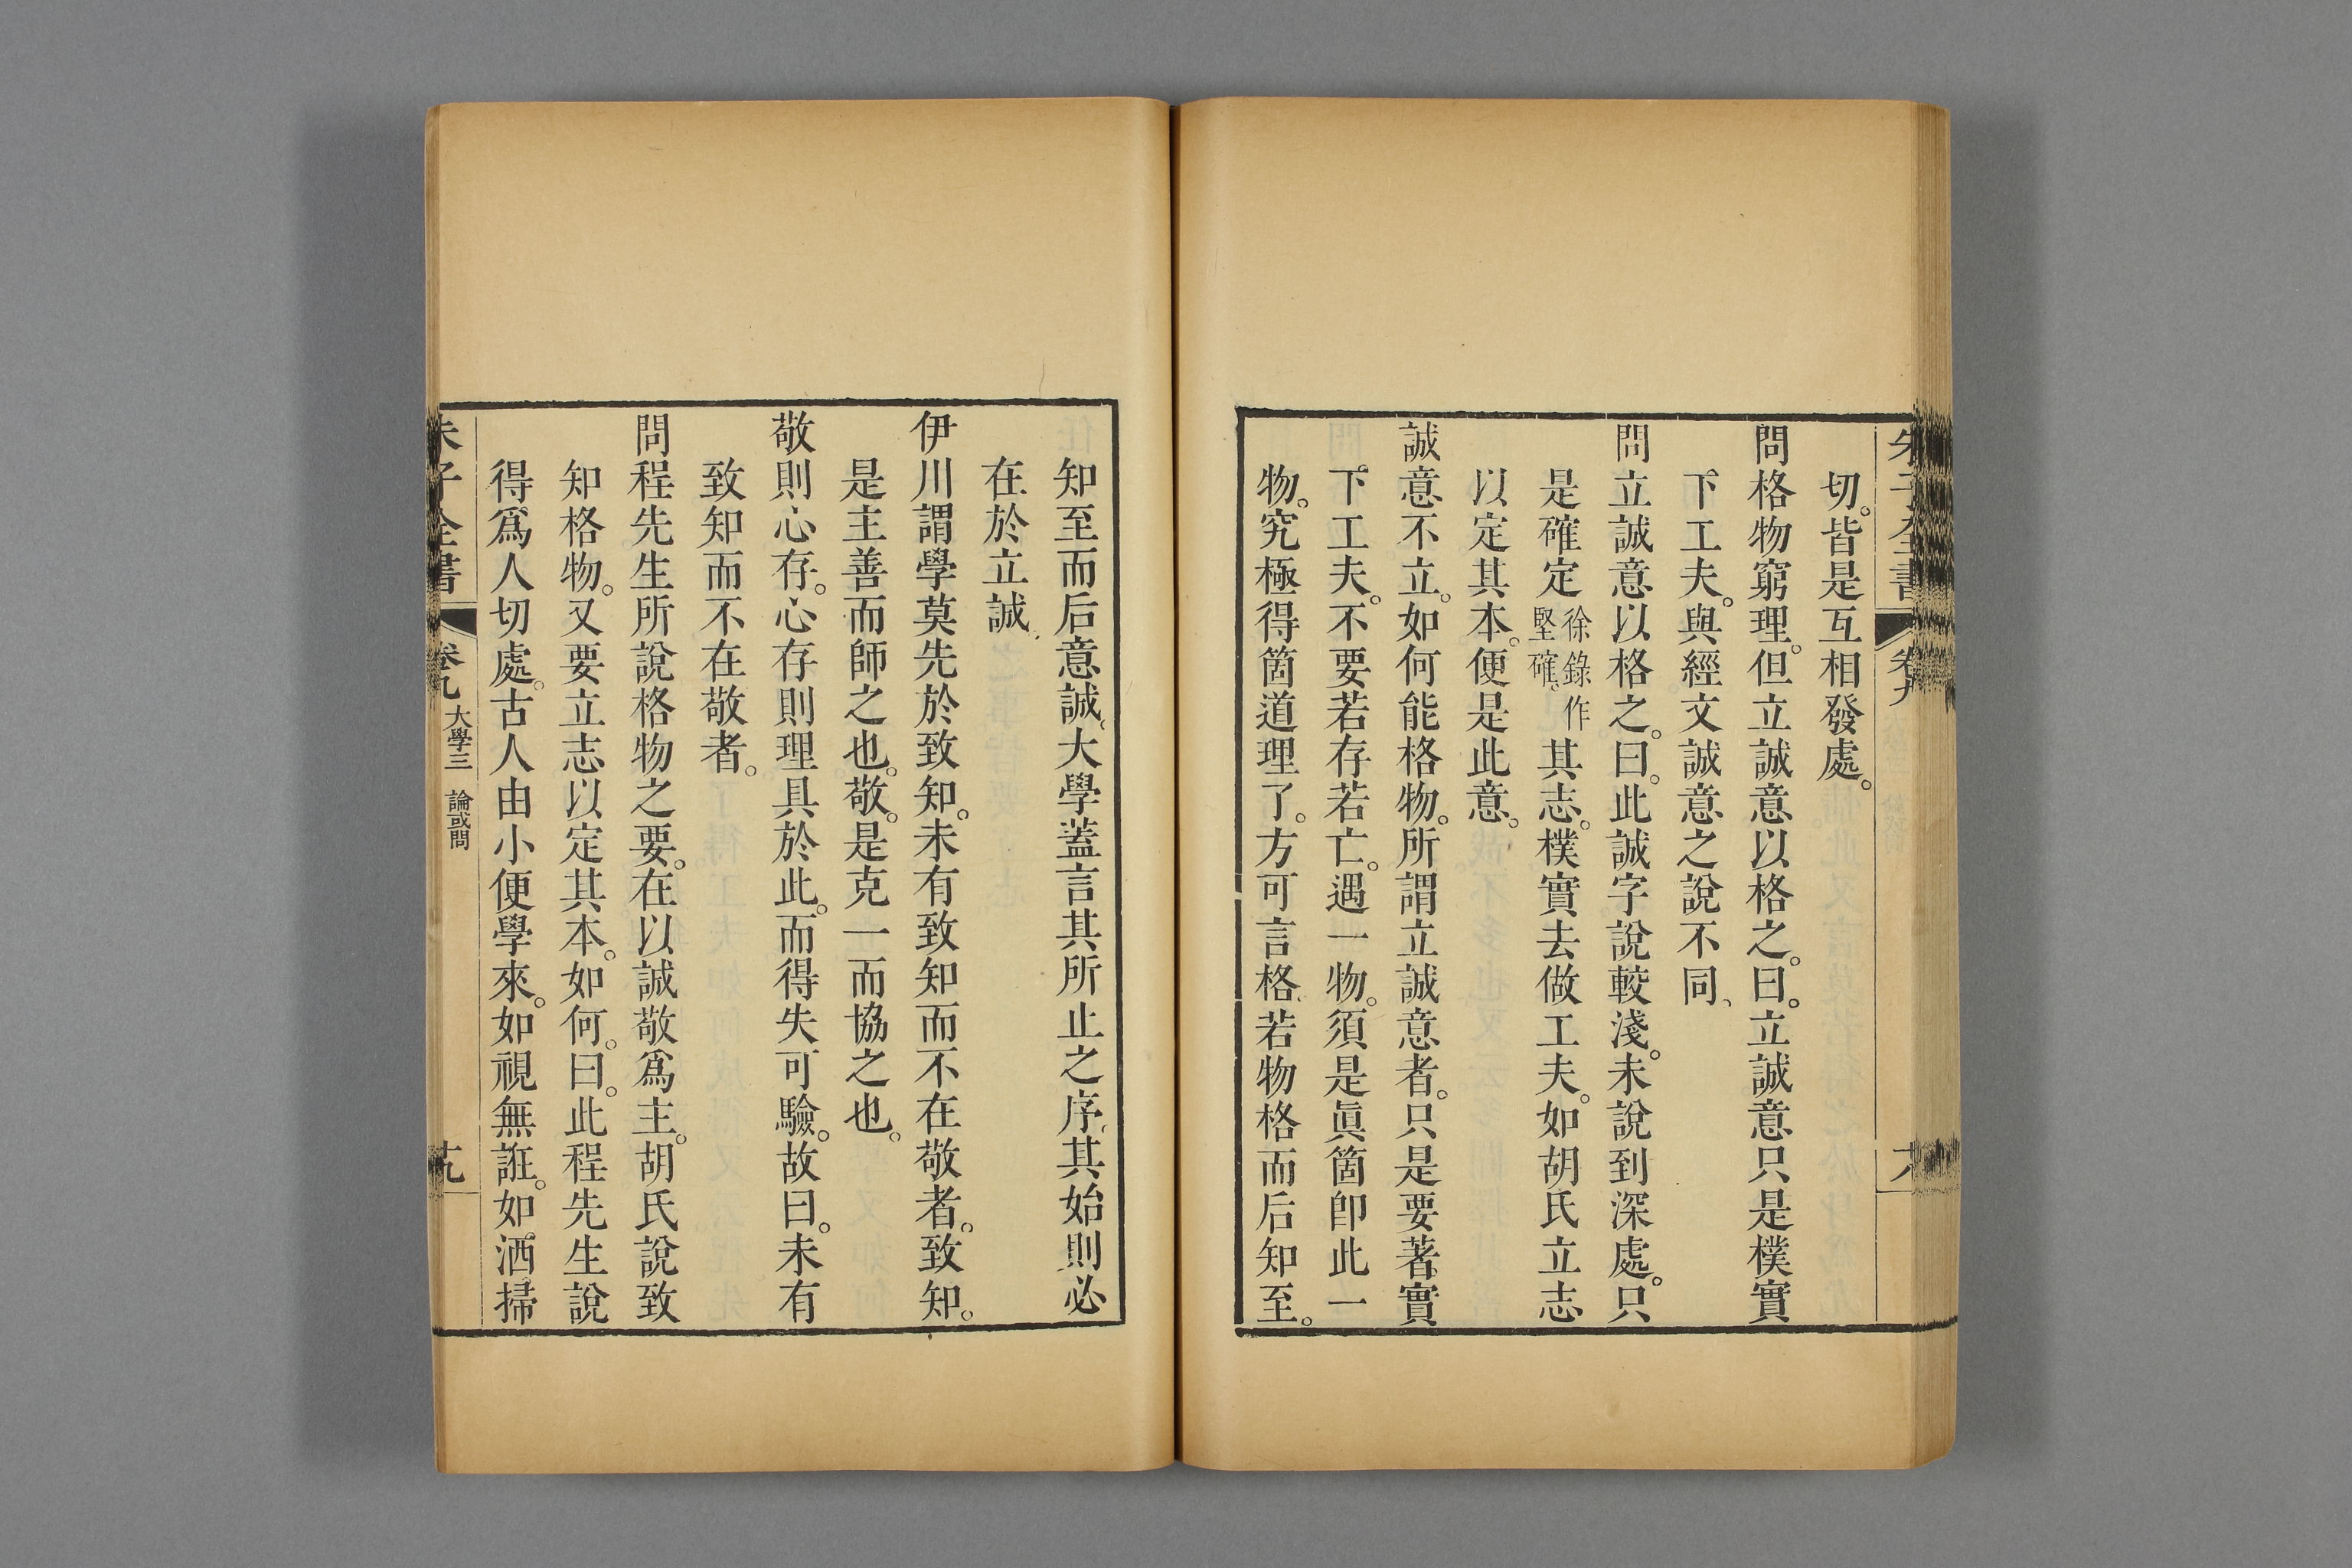 朱子全書 卷九
切。皆是互相發處。
問格物窮理。但立誠意以格之。曰。立誠意只是樸實
下工夫。與經文誠意之說不同、
問立誠意以格之。曰。此誠字說較淺。未說到深處。只
是確定徐錄作堅確。其志。樸實去做工夫。如胡氏立志
以定其本。便是此意。
誠意不立。如何能格物。所謂立誠意者。只是要著實
下工夫。不要若存若亡。遇一物。須是眞箇卽此一
物。究極得箇道理了。方可言格、若物格而后知至。
知至而后意誠、大學蓋言其所止之序、其始則必
在於立誠、
伊川謂學莫先於致知。未有致知而不在敬者。致知。
是主善而師之也。敬。是克一而協之也。
敬則心存。心存則理具於此。而得失可驗。故曰。未有
致知而不在敬者。
問程先生所說格物之要。在以誠敬爲主。胡氏說致
知格物。又要立志以定其本。如何。曰。此程先生說
得爲人切處。古人由小便學來。如視無誑。如洒掃
朱子全書 卷九 大學三 論或問 十九